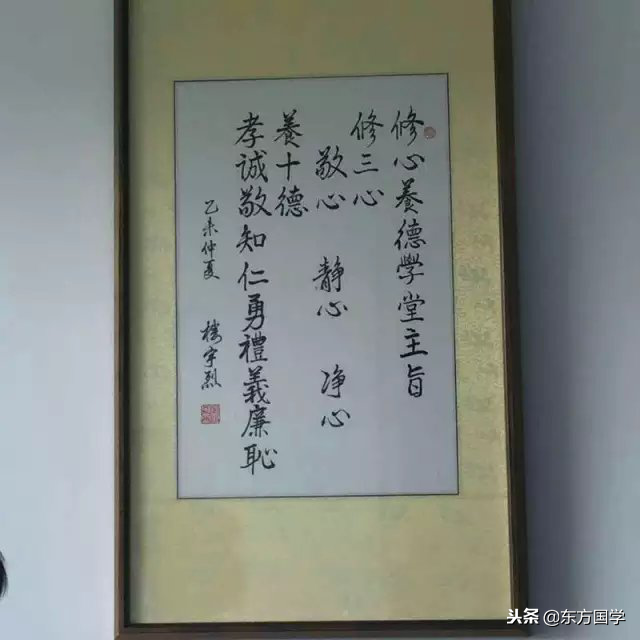 修心養德學堂主旨
修三心
敬心 静心 净心
養十德
孝誠敬知仁勇禮義廉恥
乙未仲夏 樓宇烈
头条@东方国学